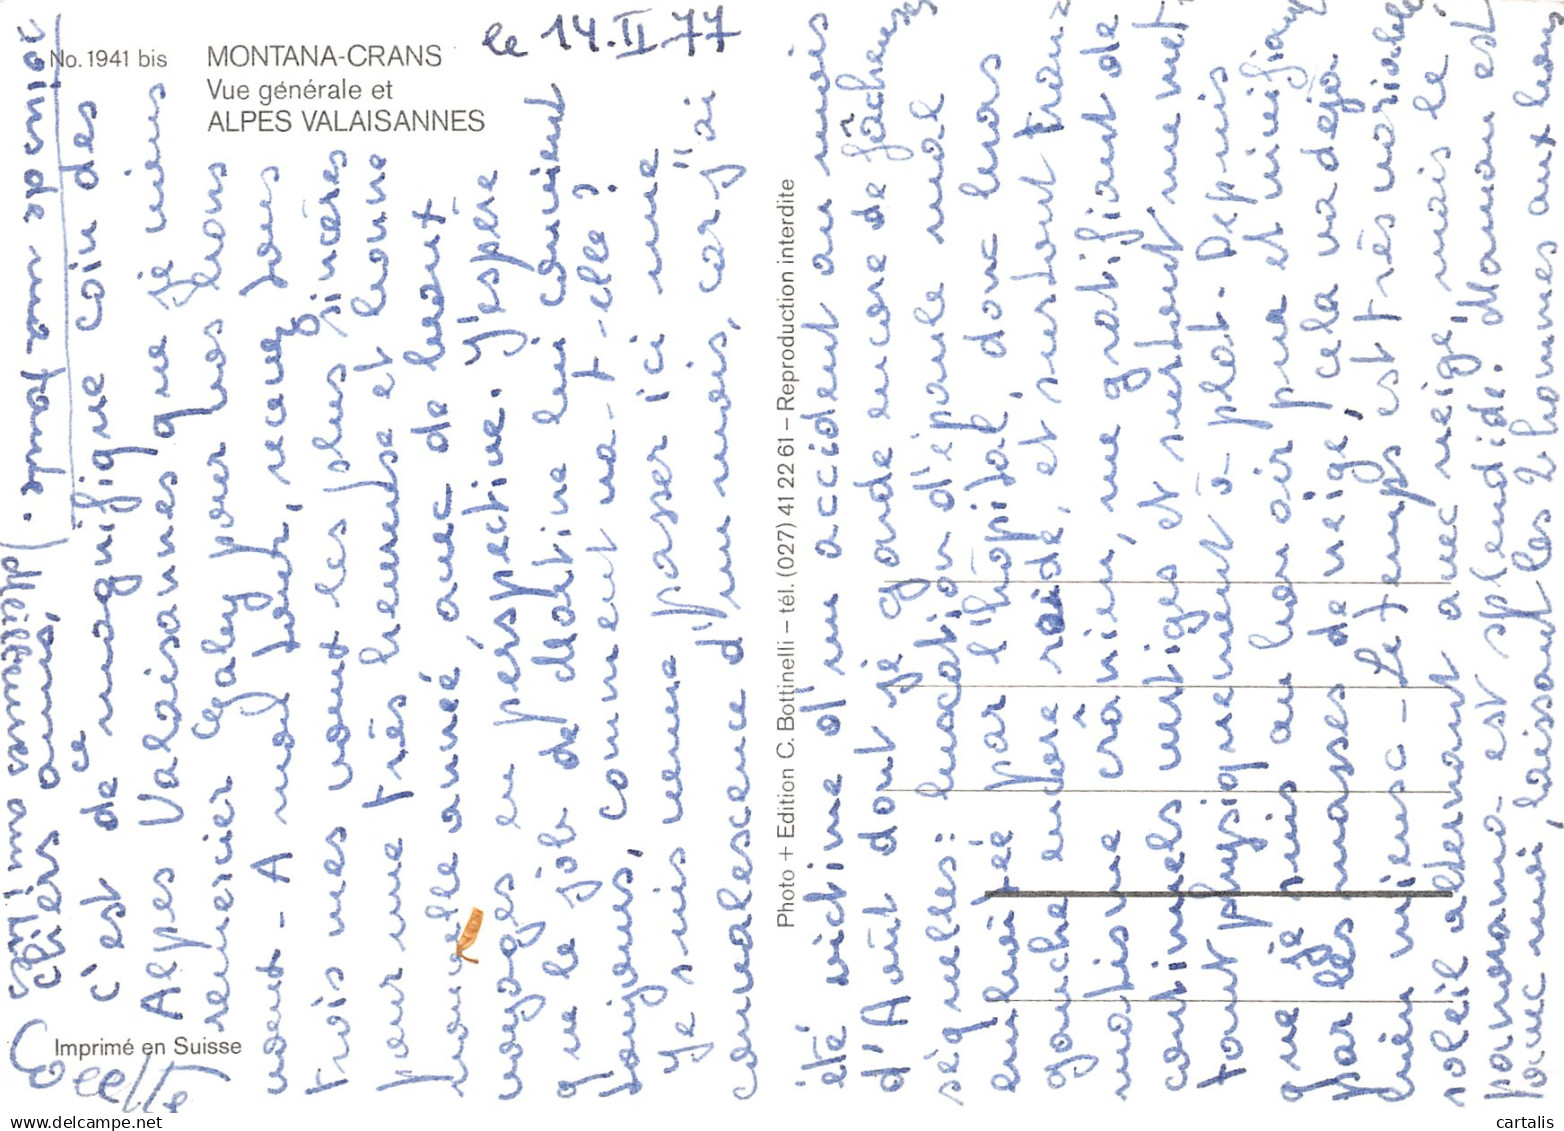 No. 1941 bis
MONTANA-CRANS
Vue générale et
ALPES VALAISANNES
le 14.II 77
Chers amis,
c'est de ce magnifique coin des
Alpes Valaisannes que je viens
remercier Gaby pour vos bons
voeux - A mon tour, recevez tous
trois mes voeux les plus sincères
pour une très heureuse et bonne
nouvelle année avec de beaux
voyages en perspective. J'espère
que le job de Martine lui convient
toujours, comment va-t-elle ?
Je suis venue passer ici une
convalescence d'un mois, car j'ai
Photo + Edition C. Bottinelli – tél. (027) 41 22 61 – Reproduction interdite
été victime d'un accident au mois
d'Août dont je garde encore de fâcheuses
séquelles: luxation d'épaule mal
par l'hôpital, donc bras
gauche encore raide, et surtout trau-
matisme crânien, me gratifiant de
continuels vertiges et surtout me met-
tant physiquement à plat. Depuis
que je suis au bon air pur et vivifiant
par les masses de neige, cela va déjà
bien mieux - Le temps est très variable
soleil alternant avec neige, mais le
panorama est splendide. Maman est
avec moi, laissant les 2 hommes aux bons
soins de ma tante.
Colette
Imprimé en Suisse
CPcartes.com
cartalis